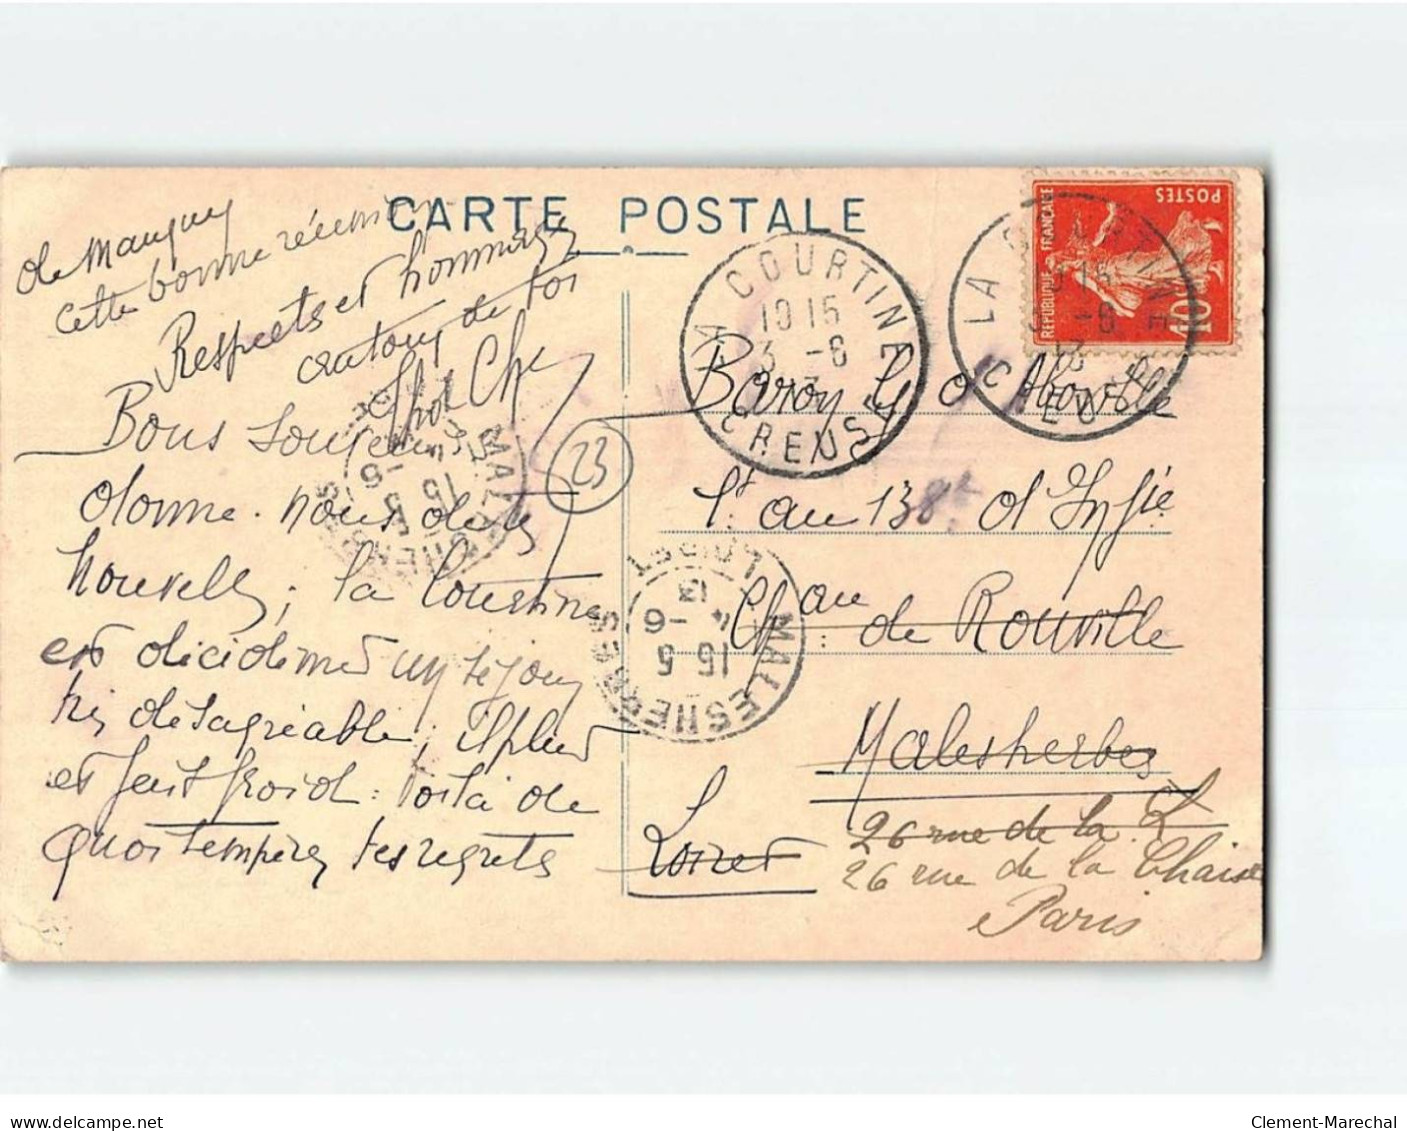 CARTE POSTALE
Bons souvenirs
donne-nous de tes
nouvelles; la Courtine
est décidément un séjour
très désagréable; il pleut
et fait froid. Voilà de
quoi tempérer tes regrets
de manquer
cette bonne réunion
Respects et hommages
autour de toi
LA COURTINE
10 15
3 -6
13
CREUSE
LA COURTINE
10 15
3 -6
13
CREUSE
POSTES
REPUBLIQUE FRANÇAISE
10
23
Baron d'Aboville
Lt au 138e d'Infie
Chau de Rouville
Malesherbes
Loiret
26 rue de la
26 rue de la Chaise
Paris
MALESHERBES
15 5
4 -6
13
LOIRET
MALESHERBES
15 5
-6
Clement-Marechal
www.delcampe.net